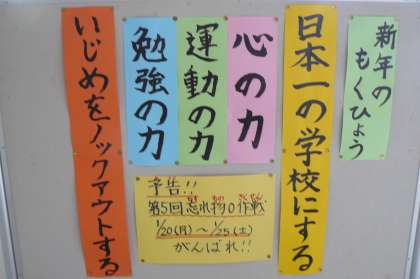 新年の
もくひょう
日本一の学校にする
心の力
運動の力
勉強の力
いじめをノックアウトする
予告!!
第5回忘れ物0作戦
1/20(月)～1/25(土)
がんばれ!!